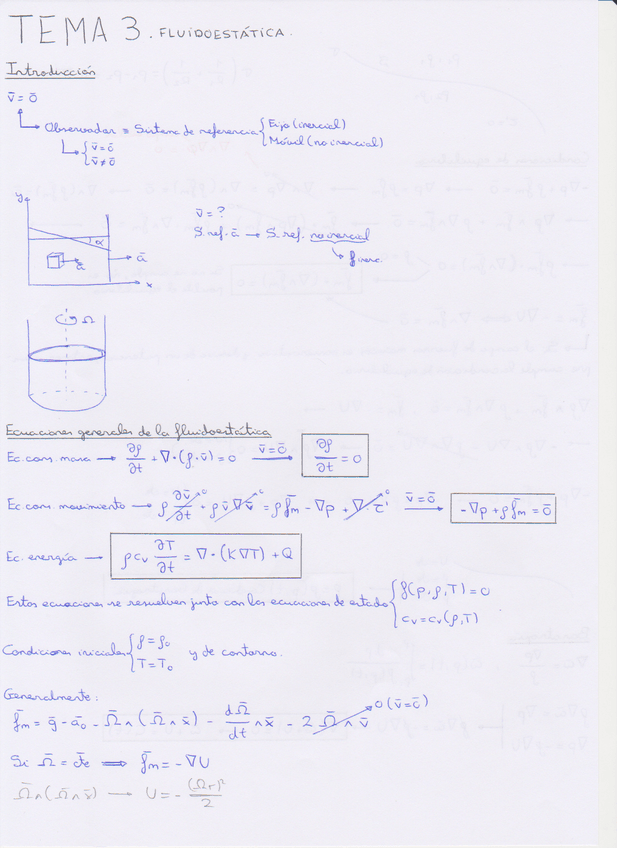 TEMA 3. FLUIDOESTÁTICA.
Introducción
v̄ = 0̄
Observador ≡ Sistema de referencia { Fijo (inercial)
Móvil (no inercial)
{ v̄ = 0̄
v̄ ≠ 0̄
y
α
ā
ā
x
v̄ = ?
S. ref. ā → S. ref. no inercial
f inerc.
Ω
Ecuaciones generales de la fluidoestática
Ec. cons. masa → ∂ρ/∂t + ∇·(ρ·v̄) = 0 v̄=0̄ → ∂ρ/∂t = 0
Ec. cons. movimiento → ρ ∂v̄/∂t + ρ v̄ ∇v̄ = ρ f̄m - ∇p + ∇·τ̄' v̄=0̄ → -∇p + ρ f̄m = 0̄
Ec. energía → ρ cv ∂T/∂t = ∇·(K∇T) + Q
Estas ecuaciones se resuelven junto con las ecuaciones de estado { f(p, ρ, T) = 0
cv = cv(ρ, T)
Condiciones iniciales { ρ = ρ0
T = T0 y de contorno.
Generalmente:
f̄m = ḡ - ā0 - Ω̄ ∧ (Ω̄ ∧ x̄) - dΩ̄/dt ∧ x̄ - 2 Ω̄ ∧ v̄ 0 (v̄=0̄)
Si Ω̄ = cte ⟹ f̄m = -∇U
Ω̄ ∧ (Ω̄ ∧ x̄) → U = - (Ωr)²/2